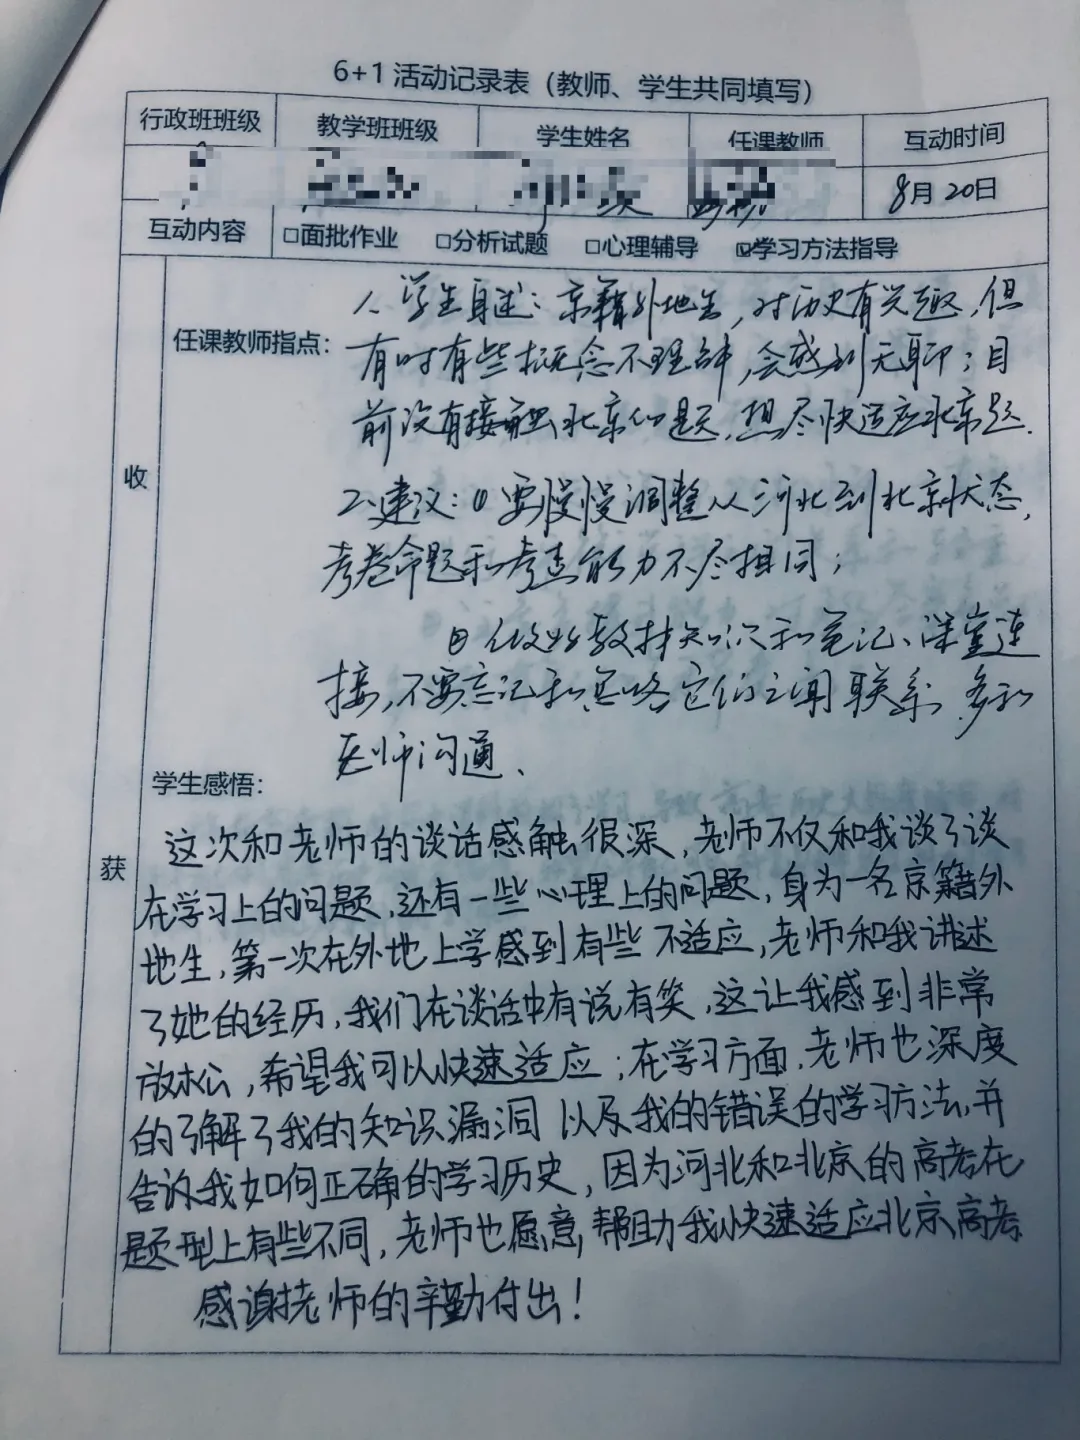 6+1 活动记录表（教师、学生共同填写）
行政班班级 教学班班级 学生姓名 任课教师 互动时间
8月20日
互动内容 □面批作业 □分析试题 □心理辅导 ☑学习方法指导
收获
任课教师指点：
1、学生自述：京籍外地生，对历史有兴趣，但
有时有些概念不理解，会感到无聊；目
前没有接触北京的题，想尽快适应北京题.
2、建议：①要慢慢调整从河北到北京状态，
考卷命题和考查能力不尽相同；
②做好教材知识和笔记、课堂连
接，不要忘记和忽略它们之间联系，多和
老师沟通、
学生感悟：
这次和老师的谈话感触很深，老师不仅和我谈了谈
在学习上的问题，还有一些心理上的问题，身为一名京籍外
地生，第一次在外地上学感到有些不适应，老师和我讲述
了她的经历，我们在谈话中有说有笑，这让我感到非常
放松，希望我可以快速适应；在学习方面，老师也深度
的了解了我的知识漏洞以及我的错误的学习方法，并
告诉我如何正确的学习历史，因为河北和北京的高考在
题型上有些不同，老师也愿意帮助我快速适应北京高考.
感谢老师的辛勤付出！